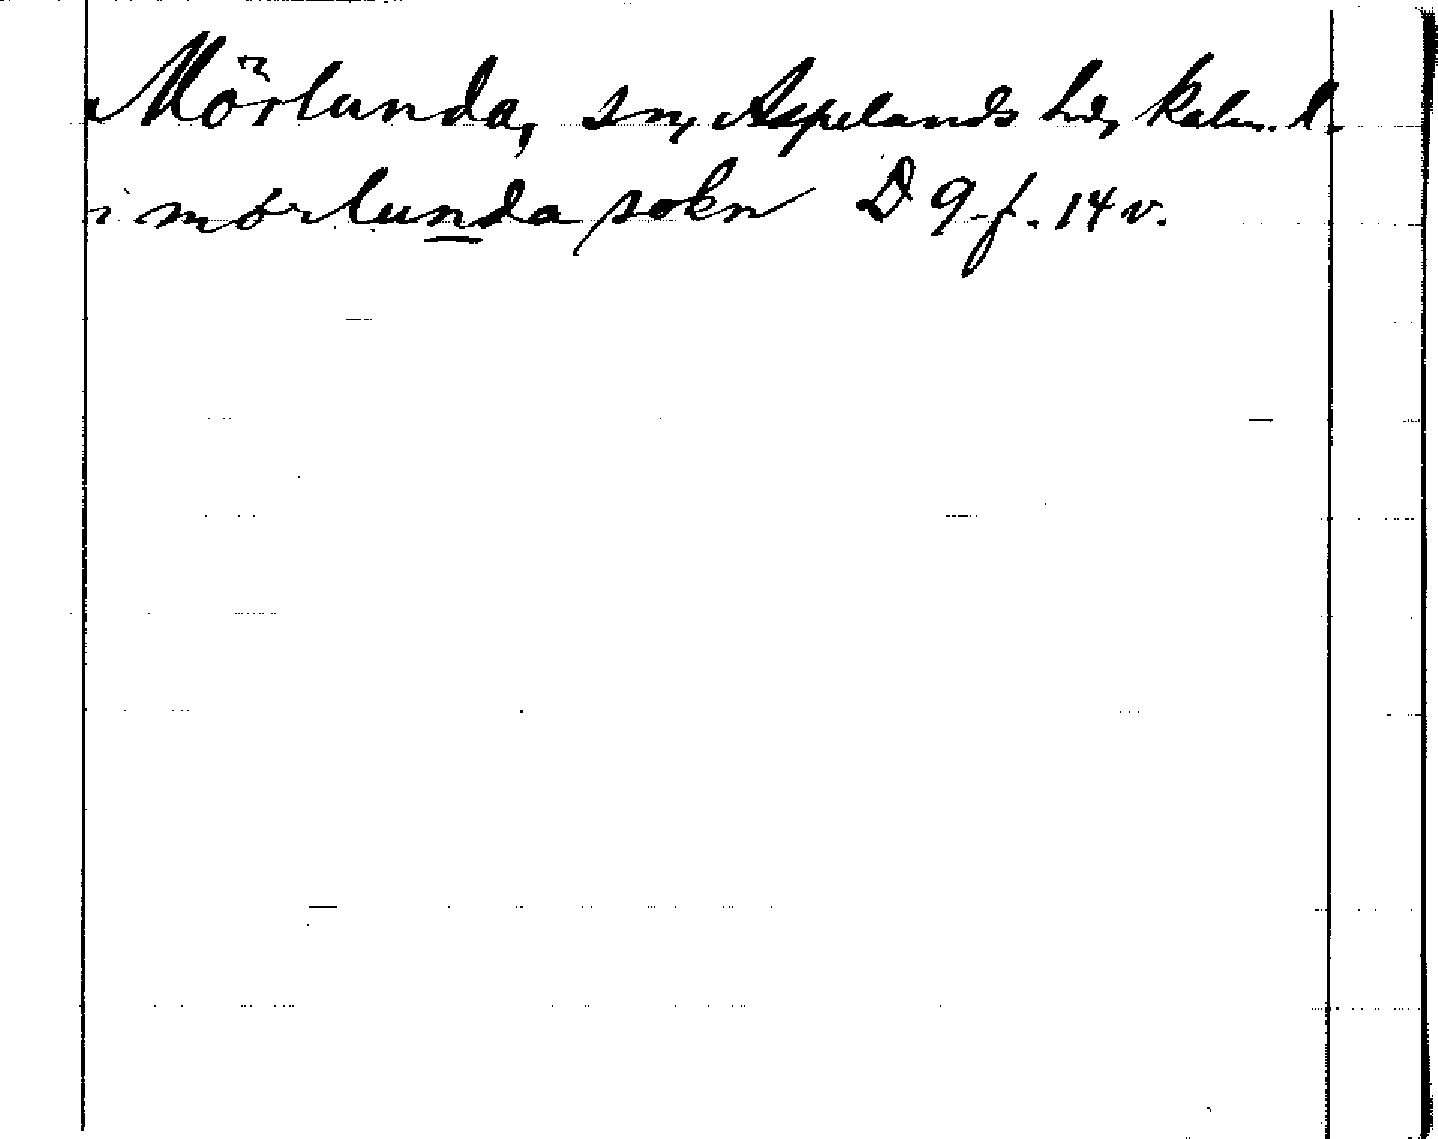 Mörlunda, sn, Aspelands hd, Kalm. l.
i mørlunda sokn D 9 f. 14 v.